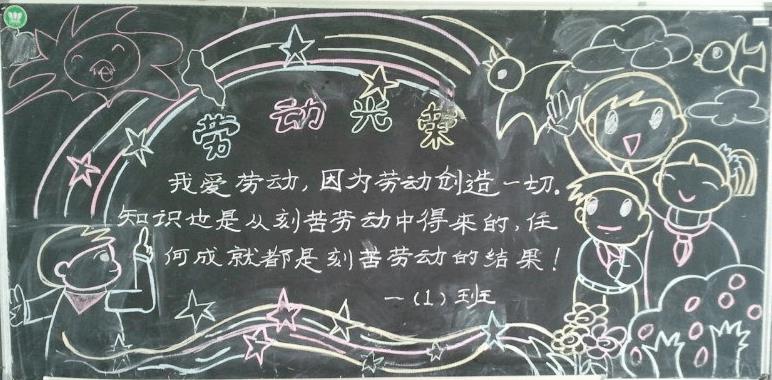 劳动光荣
我爱劳动,因为劳动创造一切。
知识也是从刻苦劳动中得来的,任
何成就都是刻苦劳动的结果!
一(1)班